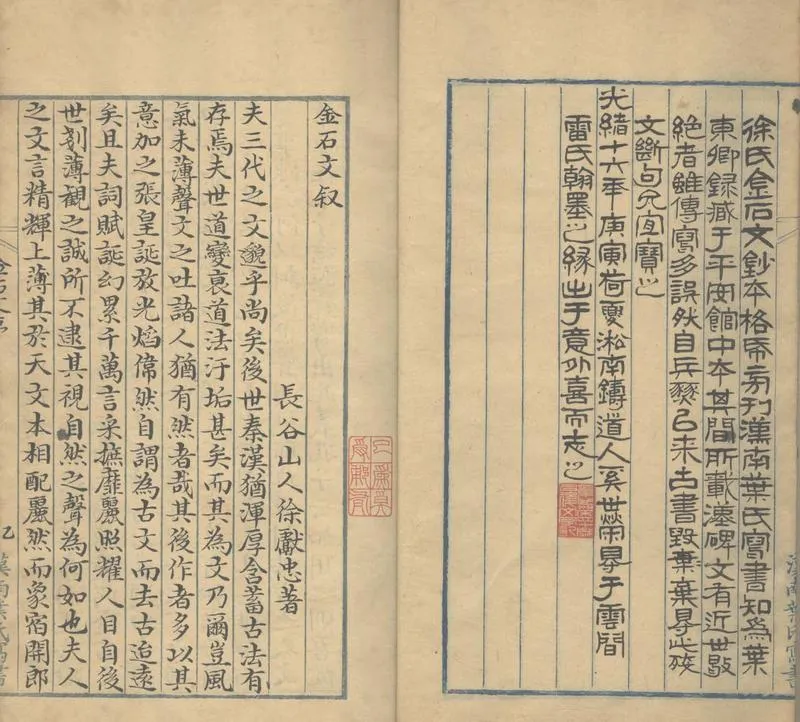 徐氏金石文鈔本格帋旁刊漢南葉氏寫書知為葉
東卿錄藏于平安館中本其間所載漢碑文有近世殷
絕者雖傳寫多誤然自兵燹已來古書毀棄棄得此殘
文斷句允宜寶之
光緒十六年庚寅荷夏淞南鑄道人奚世榮得于雲間
雷氏翰墨之緣出于意外喜而志之
漢南葉氏寫書
金石文叙
長谷山人徐獻忠著
夫三代之文邈乎尚矣後世秦漢猶渾厚含蓄古法有
存焉夫世道變衰道法汙垢甚矣而其為文乃爾豈風
氣未薄聲文之吐諸人猶有然者哉其後作者多以其
意加之張皇誕放光焰偉然自謂為古文而去古迨遠
矣且夫詞賦誕幻累千萬言采摭靡麗照耀人目自後
世剗薄觀之誠所不逮其視自然之聲為何如也夫人
之文言精輝上薄其於天文本相配麗然而象宿開郎
漢南葉氏寫書